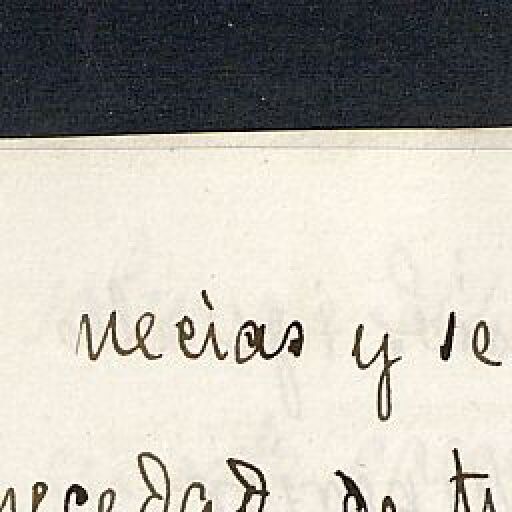 necias y se
necedad de tu